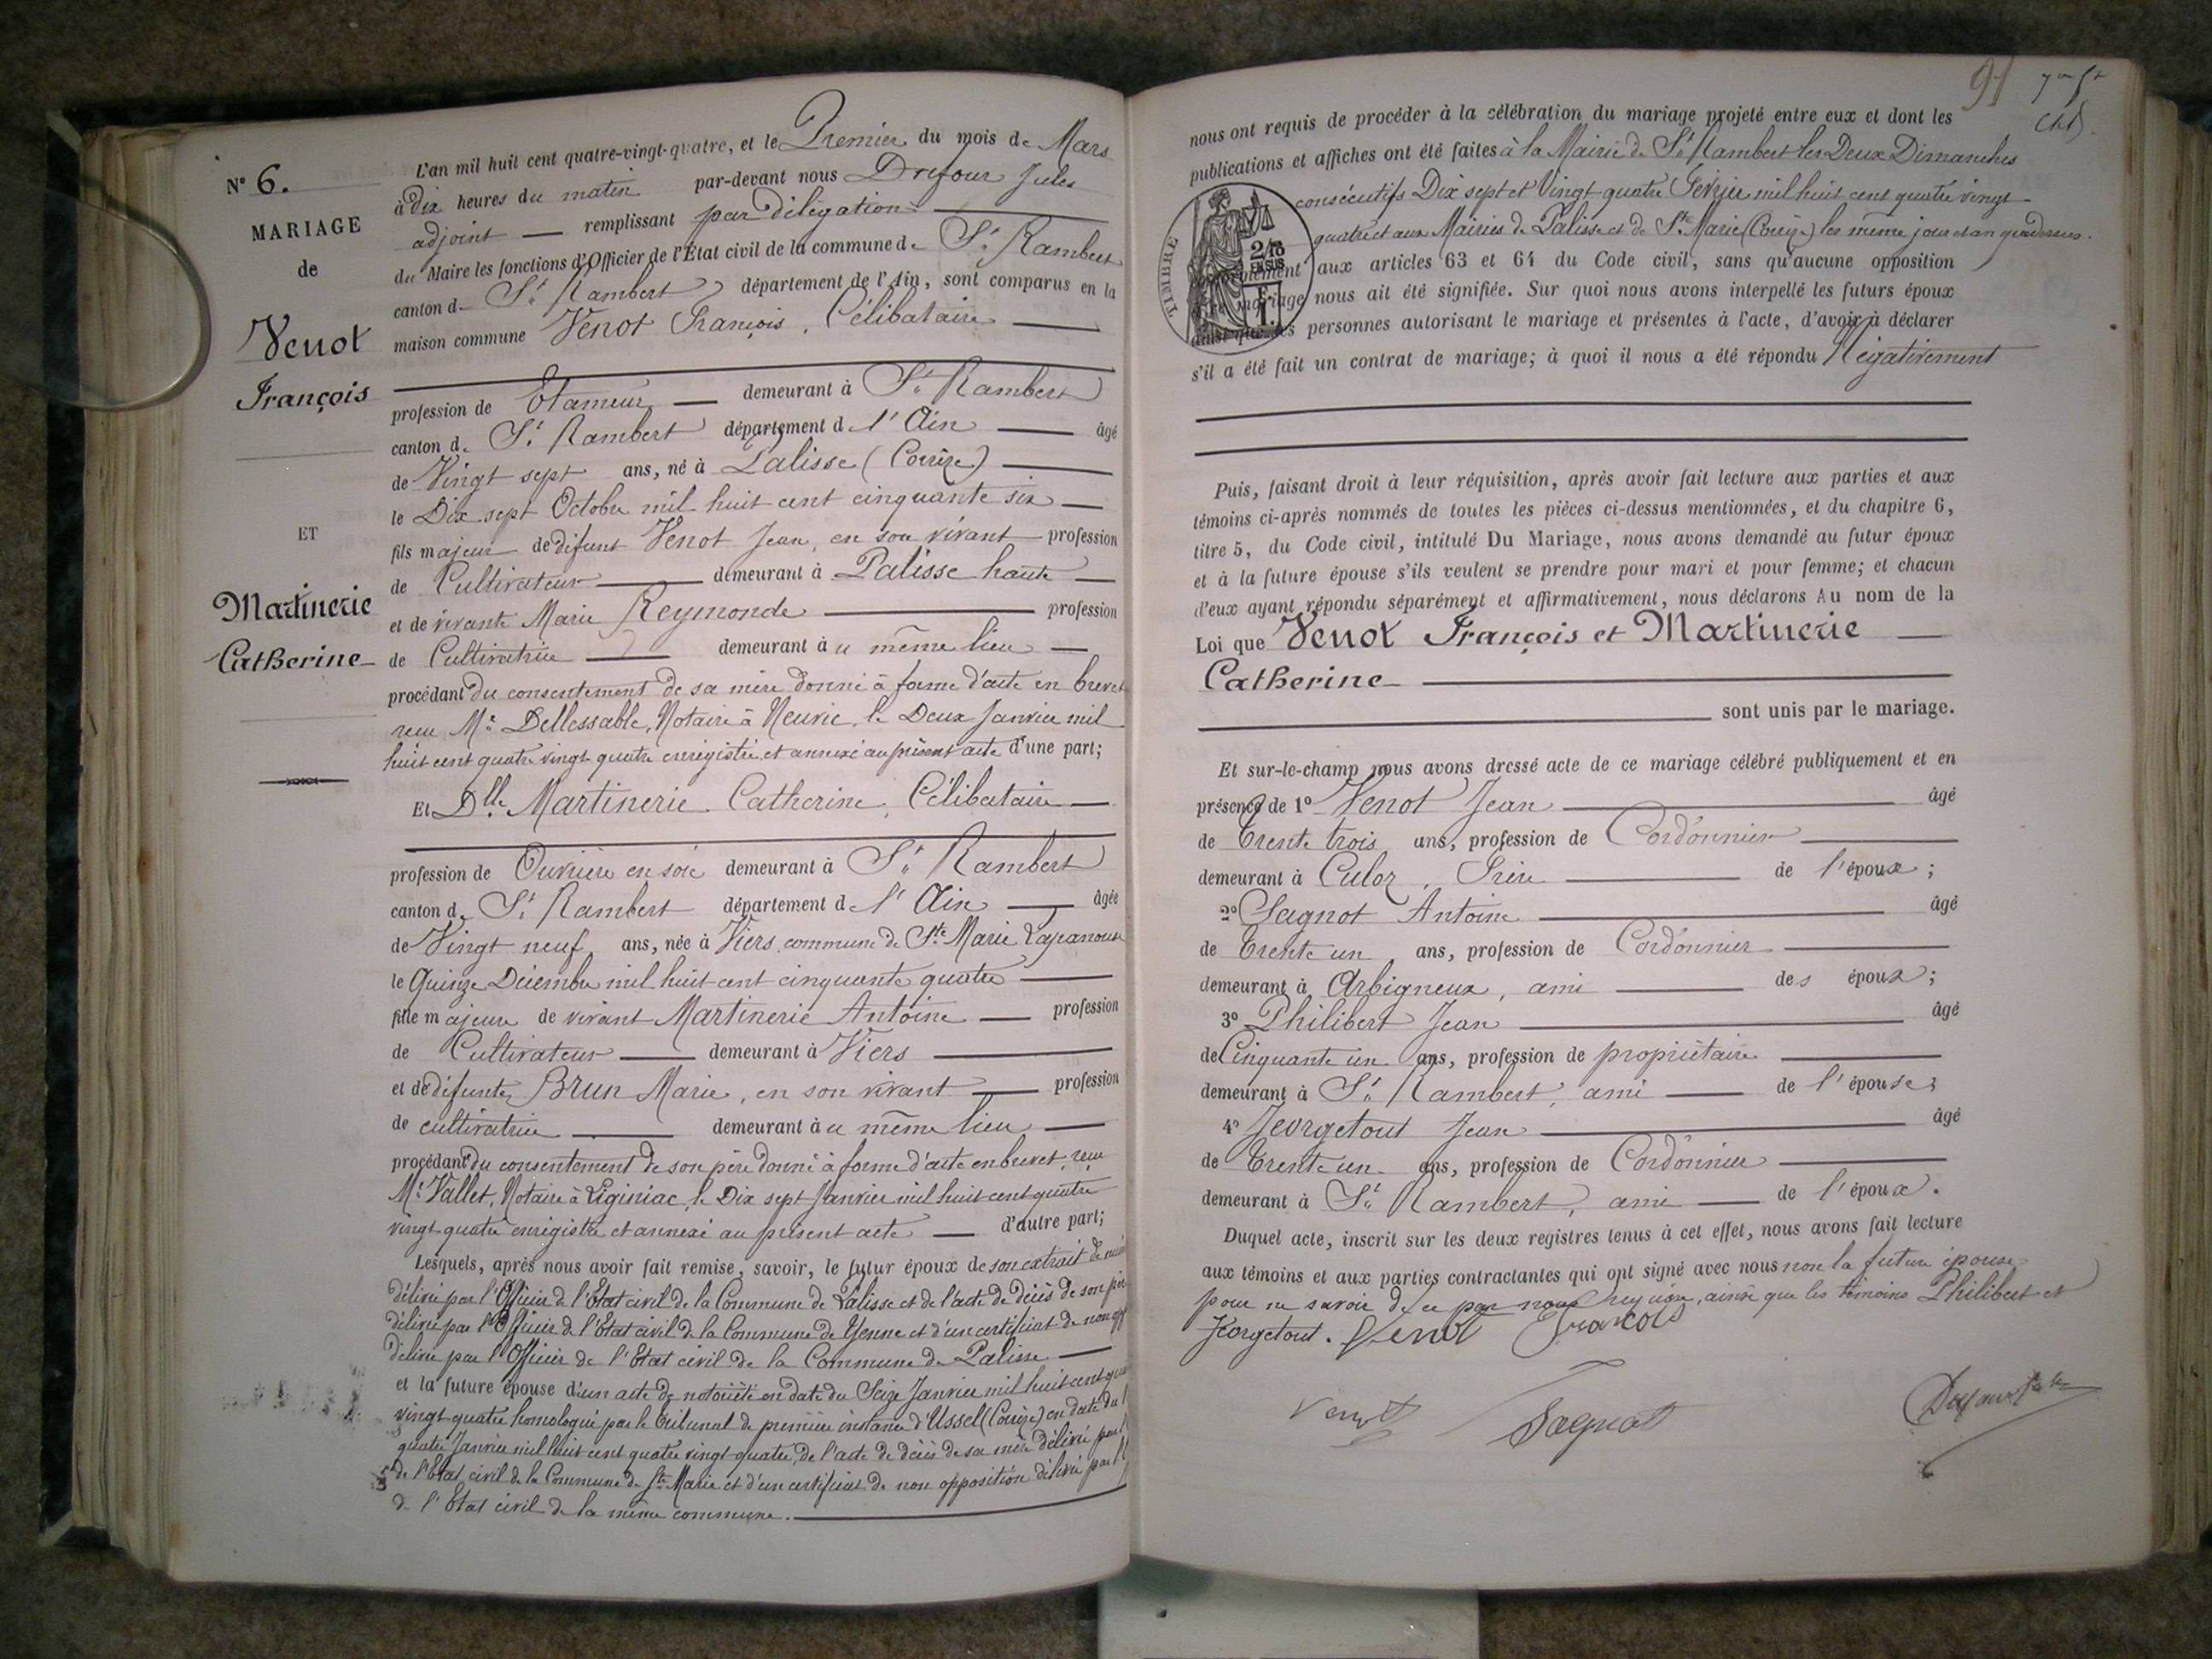 N° 6.
MARIAGE
de
Venot
François
ET
Martinerie
Catherine
L'an mil huit cent quatre-vingt-quatre, et le Premier du mois de Mars
à dix heures du matin par-devant nous Drefour Jules
adjoint remplissant par délégation
du Maire les fonctions d'Officier de l'État civil de la commune de St Rambert
canton de St Rambert département de l'Ain, sont comparus en la
maison commune Venot François, Célibataire
profession de Etameur demeurant à St Rambert
canton de St Rambert département de l'Ain âgé
de Vingt sept ans, né à Palisse (Corrèze)
le Dix sept Octobre mil huit cent cinquante six
fils majeur de défunt Venot Jean, en son vivant profession
de Cultivateur demeurant à Palisse haute
et de vivante Marie Reymonde profession
de Cultivatrice demeurant à u même lieu
procédant du consentement de sa mère donné à forme d'acte en brevet
reçu Me Dellessable, Notaire à Neuvic, le Deux Janvier mil
huit cent quatre vingt quatre enregistré et annexé au présent acte d'une part;
Et Dlle Martinerie Catherine, Célibataire
profession de Ouvrière en soie demeurant à St Rambert
canton de St Rambert département de l'Ain âgée
de Vingt neuf ans, née à Viers, commune de Ste Marie Lapanouse
le Quinze Décembre mil huit cent cinquante quatre
fille majeure de vivant Martinerie Antoine profession
de Cultivateur demeurant à Viers
et de défunte Brun Marie, en son vivant profession
de cultivatrice demeurant à u même lieu
procédant du consentement de son père donné à forme d'acte en brevet, reçu
Me Vallet, Notaire à Liginiac, le Dix sept Janvier mil huit cent quatre
vingt quatre enregistré et annexé au présent acte d'autre part;
Lesquels, après nous avoir fait remise, savoir, le futur époux de son extrait de
délivré par l'Officier de l'Etat civil de la Commune de Palisse et de l'acte de décès de son
délivré par l'Officier de l'Etat civil de la Commune de Yenne et d'un certificat de non
délivré par l'Officier de l'Etat civil de la Commune de Palisse
et la future épouse d'un acte de notoriété en date du Seize Janvier mil huit cent
vingt quatre homologué par le Tribunal de première instance d'Ussel (Corrèze) en date du
quatre Janvier mil huit cent quatre vingt quatre, de l'acte de décès de sa mère délivré par
de l'Etat civil de la Commune de Ste Marie et d'un certificat de non opposition délivré par
de l'Etat civil de la même commune.
91
nous ont requis de procéder à la célébration du mariage projeté entre eux et dont les
publications et affiches ont été faites à la Mairie de St Rambert les Deux Dimanches
consécutifs Dix sept et Vingt quatre Février mil huit cent quatre vingt
quatre et aux Mairies de Palisse et de Ste Marie (Corrèze) les même jour et an que dessus.
TIMBRE
2/10
EN SUS
F.
1.
aux articles 63 et 64 du Code civil, sans qu'aucune opposition
mariage nous ait été signifiée. Sur quoi nous avons interpellé les futurs époux
ainsi que les personnes autorisant le mariage et présentes à l'acte, d'avoir à déclarer
s'il a été fait un contrat de mariage; à quoi il nous a été répondu Négativement
Puis, faisant droit à leur réquisition, après avoir fait lecture aux parties et aux
témoins ci-après nommés de toutes les pièces ci-dessus mentionnées, et du chapitre 6,
titre 5, du Code civil, intitulé Du Mariage, nous avons demandé au futur époux
et à la future épouse s'ils veulent se prendre pour mari et pour femme; et chacun
d'eux ayant répondu séparément et affirmativement, nous déclarons Au nom de la
Loi que Venot François et Martinerie
Catherine
sont unis par le mariage.
Et sur-le-champ nous avons dressé acte de ce mariage célébré publiquement et en
présence de 1° Venot Jean âgé
de Trente trois ans, profession de Cordonnier
demeurant à Culoz, Frère de l'époux;
2° Sagnot Antoine âgé
de Trente un ans, profession de Cordonnier
demeurant à Arbigneux, ami des époux;
3° Philibert Jean âgé
de Cinquante un ans, profession de propriétaire
demeurant à St Rambert, ami de l'épouse;
4° Jeorgetout Jean âgé
de Trente un ans, profession de Cordonnier
demeurant à St Rambert, ami de l'époux.
Duquel acte, inscrit sur les deux registres tenus à cet effet, nous avons fait lecture
aux témoins et aux parties contractantes qui ont signé avec nous non la future épouse
pour ne savoir de ce par nous requise, ainsi que les témoins Philibert et
Jeorgetout. Venot François
Venot Sagnot